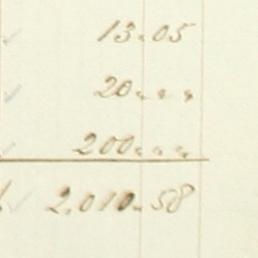 13.05
20.,,
200.,,
2.010.58